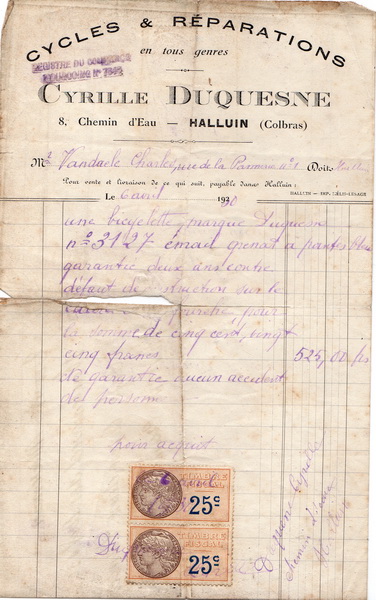 CYCLES & RÉPARATIONS
en tous genres
REGISTRE DU COMMERCE
CYRILLE DUQUESNE
8, Chemin d'Eau — HALLUIN (Colbras)
Mr Vandaele Charles, rue de la Nº 1 Doit
Pour vente et livraison de ce qui suit, payable dans Halluin :
HALLUIN — IMP.
Le 6 avril 1930
une bicyclette marque Duquesne
nº 3127 émail grenat à
garantie deux ans contre
défaut de struction sur le
pour
la somme de cinq cent vingt
cinq francs 525,00 frs
de garantie aucun accident
de personne
pour acquit
TIMBRE
FISCAL
25c
TIMBRE
FISCAL
25c
Duquesne Cyrille
chemin d'eau